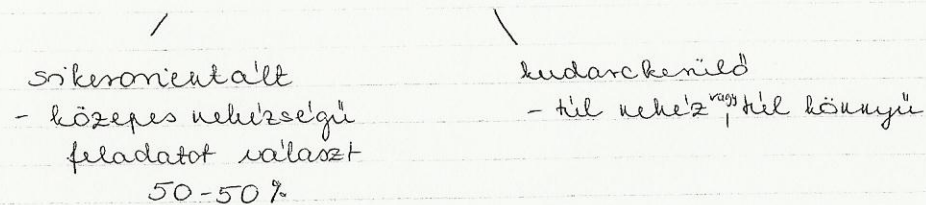 sikerorientált
- közepes nehézségű
feladatot választ
50-50%
kudarckerülő
- túl nehéz vagy túl könnyű